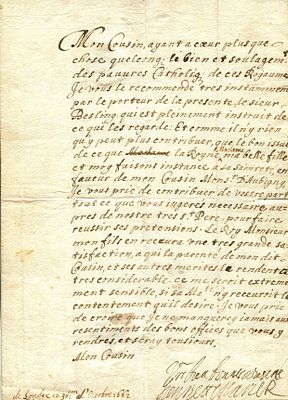 Mon Cousin, ayant a cœur plus que
chose quelconq. le bien et soulagem.
des pauures Catholiq. de ces Royaume
Je vous le recommende tres instamment
par le porteur de la presente, le sieur
Besling, qui est pleinement instruit de
ce qui les regarde. Et comme il n'y rien
qu'y peut plus contribuer, que le bon issue
de ce que la Royne, ma belle fille
et moy faisons instance a sa Saintete, en
faueur de mon Cousin Mons.r d'Aubigny
Je vous prie de contribuer de vostre part
tout ce que vous jugerés necessaire au-
pres de nostre tres S.t Pere, pour faire
reussir ses pretensions. Le Roy Monsieur
mon fils en receura vne tres grande sa-
tisfaction, a qui la parenté de mon dit
Cousin, et ses autres merites le rendent
tres considerable. Ce me seroit extreme-
ment sensible, si sa
contentement qu'il desire. Je vous prie
de croire que Je ne manquerey iamais aux
resentiments des bons offices que vous y
rendres, et serey tousiours,
Mon Cousin
de Londre ce 30 d'Octobre 1662